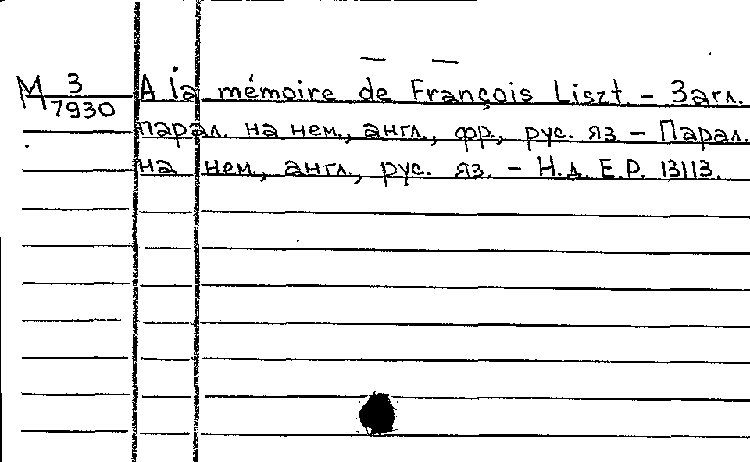 М 3/7930
A la mémoire de François Liszt – Загл.
парал. на нем., англ., фр., рус. яз – Парал.
на нем., англ., рус. яз. – Н.д. E.P. 13113.